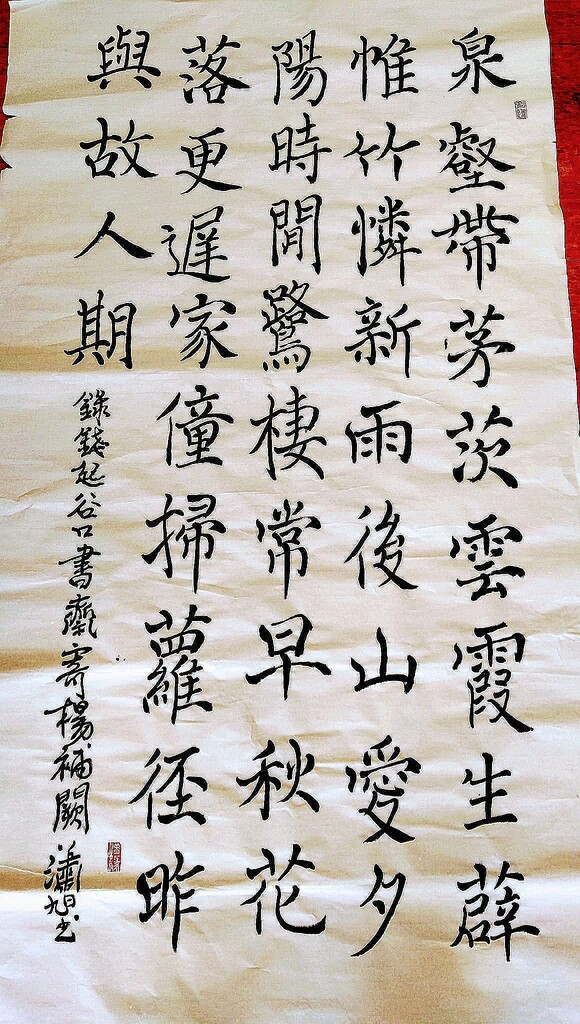 泉壑帶茅茨雲霞生薜
惟竹憐新雨後山愛夕
陽時閒鷺棲常早秋花
落更遲家僮掃蘿徑昨
與故人期
錄錢起谷口書齋寄楊補闕 瀟旭书